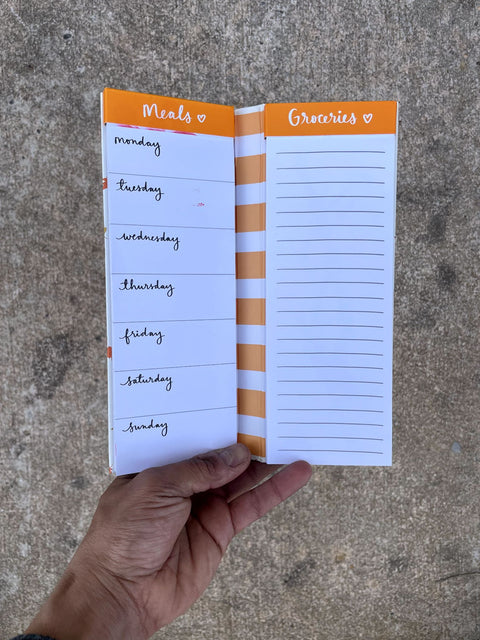 Meals ♡
monday
tuesday
wednesday
thursday
friday
saturday
sunday
Groceries ♡